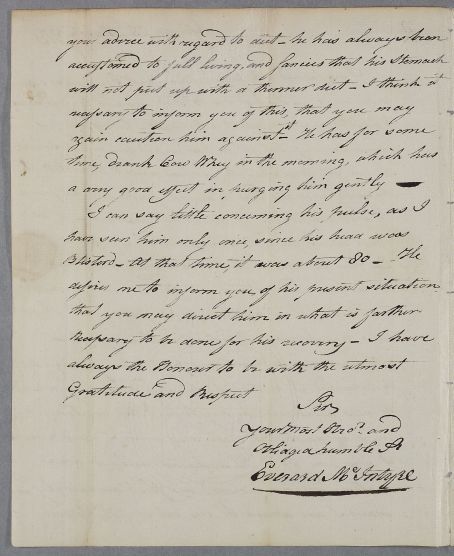 your advice with regard to diet – he has always been
accustomed to full living, and fancies that his Stomach
will not put up with a thinner diet – I think it
necessary to inform you of this, that you may
again caution him against it – He has for some
time, drank Cow Whey in the morning, which has
a very good effect in purging him gently –
I can say little concerning his pulse, as I
have seen him only once, since his head was
Blisterd – At that time, it was about 80 – He
desires me to inform you of his present situation
that you may direct him in what is farther
necessary to be done for his recovery – I have
always the Honour to be with the utmost
Gratitude and Respect
Sir,
Your most and
Obliged humble St
Everard McIntyre